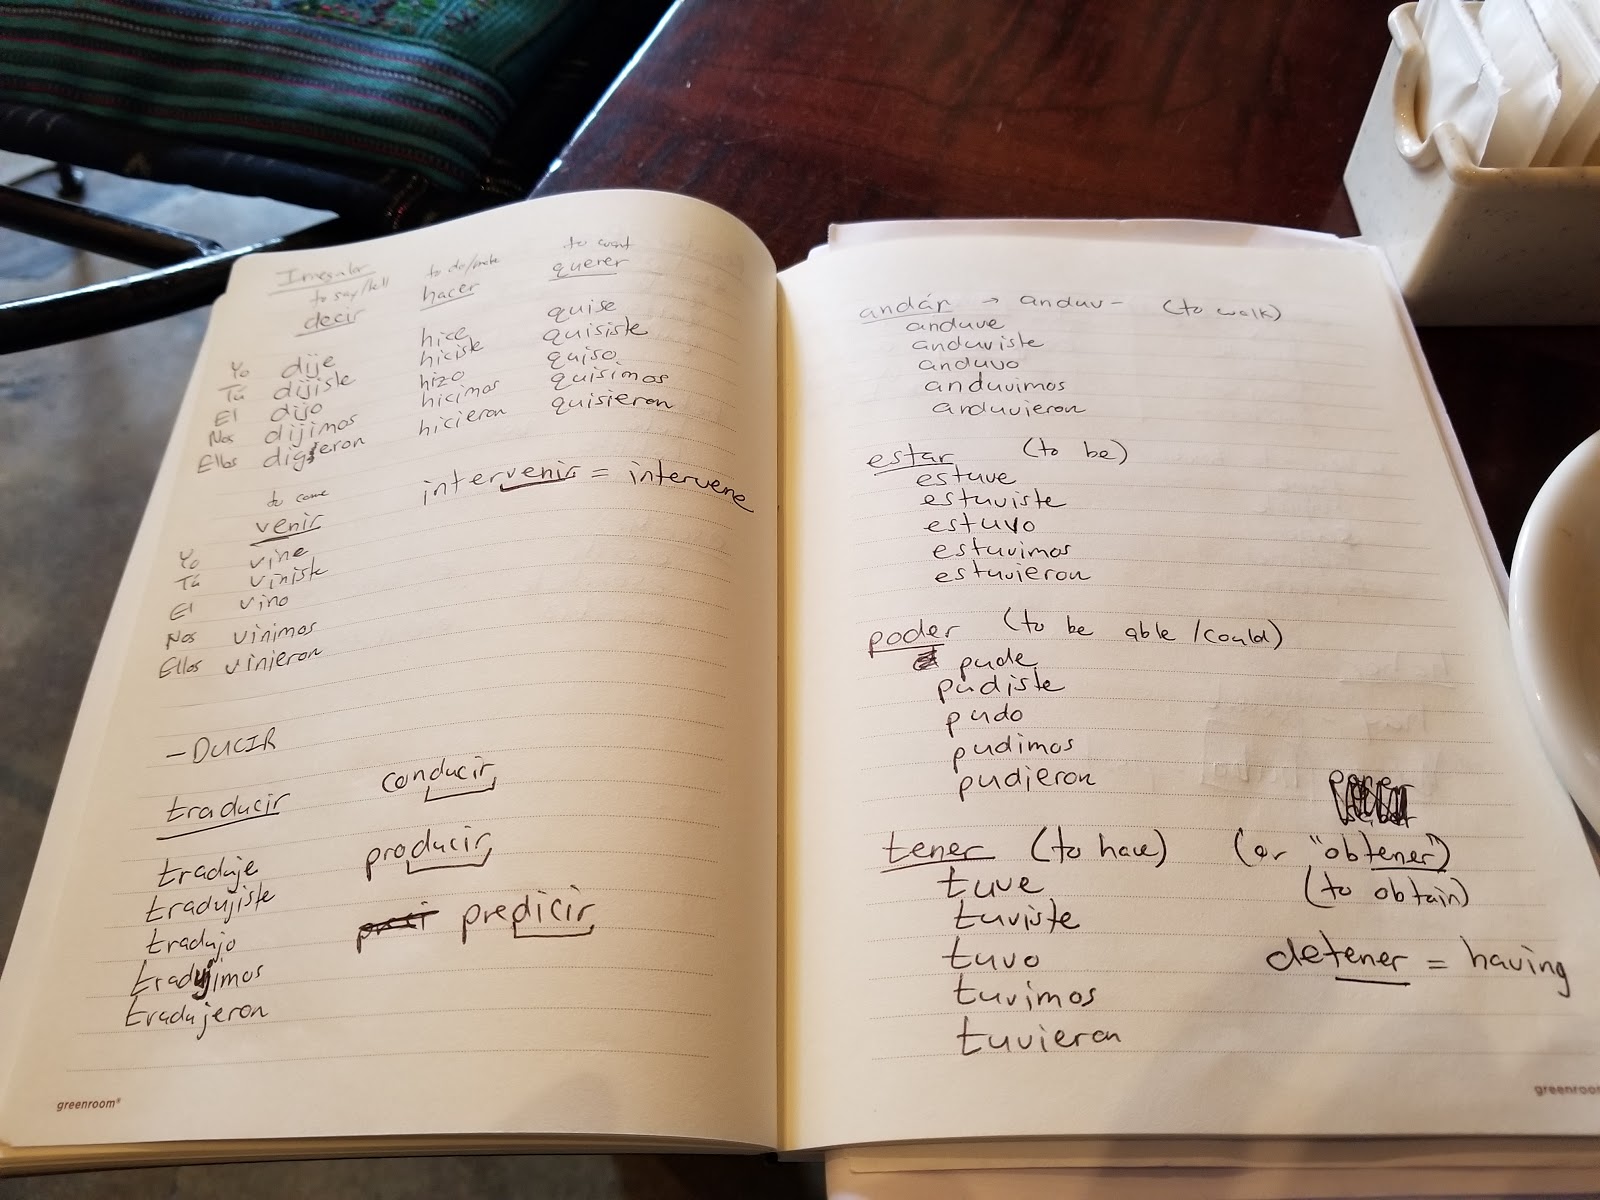 Irregular
to say/tell to do/make to want
decir hacer querer
Yo dije hice quise
Tú dijiste hiciste quisiste
El dijo hizo quiso
Nos dijimos hicimos quisimos
Ellos digeron hicieron quisieron
to come
venir intervenir = intervene
Yo vine
Tú viniste
El vino
Nos vinimos
Ellos vinieron
-DUCIR
traducir conducir
traduje producir
tradujiste
tradujo predicir
tradujimos
tradujeron
greenroom®
andár → anduv- (to walk)
anduve
anduviste
anduvo
anduvimos
anduvieron
estar (to be)
estuve
estuviste
estuvo
estuvimos
estuvieron
poder (to be able /could)
pude
pudiste
pudo
pudimos
pudieron
tener (to have) (or "obtener")
tuve (to obtain)
tuviste
tuvo detener = having
tuvimos
tuvieron